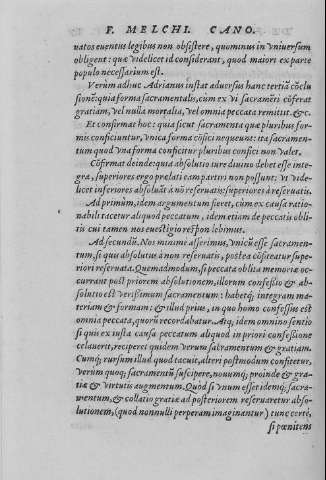 F. MELCHI. CANO.
uatos euentus legibus non obsistere, quominus in vniuersum
obligent: quæ videlicet id considerant, quod maiori ex parte
populo necessarium est.
Verum adhuc Adrianus instat aduersus hanc tertiā cōclu
sionē: quia forma sacramentalis, cum ex vi sacramēti cōferat
gratiam, vel nulla mortalia, vel omnia peccata remittit. &c.
Et confirmat hoc: quia sicut sacramenta quæ pluribus for-
mis conficiuntur, vnica forma cōfici nequeunt: ita sacramen-
tum quod vna forma conficitur pluribus confici non valet.
Cōfirmat deinde: quia absolutio iure diuino debet esse inte-
gra, superiores ergo prælati eam partiri non possunt: vt vi-
delicet inferiores absoluāt à nō reseruatis: superiores à reseruatis.
Ad primum, idem argumentum fieret, cum ex causa ratio-
nabili tacetur aliquod peccatum, idem etiam de peccatis obli-
tis cui tamen nos è vestigio respon lebimus.
Ad secundū. Nos minimè asserimus, vnicū esse sacramen-
tum, si quis absolutus à non reseruatis, postea cōficeatur supe-
riori reseruata. Quemadmodum, si peccata oblita memoriæ oc-
currant post priorem absolutionem, illorum confessio & ab-
solutio est verissimum sacramentum: habetq; integram ma-
teriam & formam: & illud prius, in quo homo confessus est
omnia peccata, quorū recordabatur. Atq; idem omnino sentio
si quis ex iusta causa peccatum aliquod in priori confessione
celauerit, reciperet quidem verum sacramentum & gratiam.
Cumq; rursum illud quod tacuit, alteri postmodum confitetur,
verum quoq; sacramentū suscipere, nouumq; proinde & gra-
tiæ & virtutis augmentum. Quòd si vnum esset idemq; sacra-
mentum, & collatio gratiæ ad posteriorem reseruaretur abso-
lutionem, (quod nonnulli perperam imaginantur) tunc certè,
si pœnitens